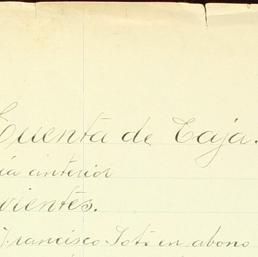 Cuenta de Caja.
ia anterior
rientes.
Francisco Soto en abono